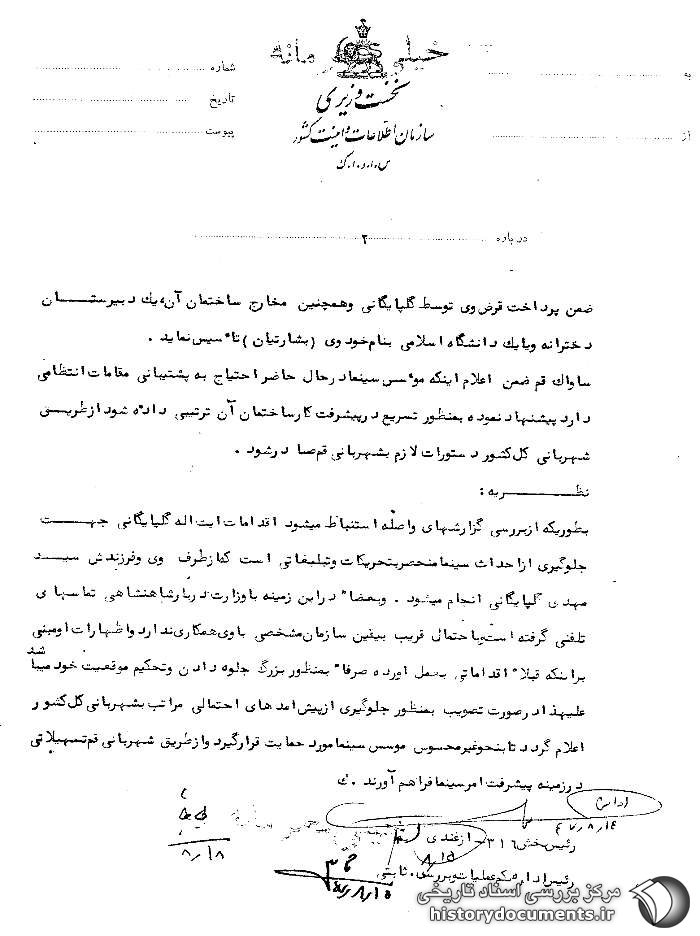 خیلی محرمانه
به
شماره
نخست وزیری
تاریخ
سازمان اطلاعات و امنیت کشور
از
پیوست
س.ا.و.ا.ک
درباره ۲
ضمن پرداخت قرض وی توسط گلپایگانی وهمچنین مخارج ساختمان آن، یك دبیرستان
دخترانه ویایك دانشگاه اسلامی بنام خود وی (بشارتیان) تاسیس نماید .
ساواك قم ضمن اعلام اینکه موسس سینما درحال حاضر احتیاج به پشتیبانی مقامات انتظامی
دارد پیشنهاد نموده بمنظور تسریع درپیشرفت کارساختمان آن ترتیبی داده شود ازطریق
شهربانی کل کشور دستورات لازم بشهربانی قم صادر شود .
نظریه :
بطوریکه ازبررسی گزارشهای واصله استنباط میشود اقدامات ایت اله گلپایگانی جهت
جلوگیری ازاحداث سینما منحصر بتحریکات وتبلیغاتی است که ازطرف وی وفرزندش سید
مهدی گلپایگانی انجام میشود . وبعضاً دراین زمینه با وزارت دربار شاهنشاهی تماسهای
تلفنی گرفته است وباحتمال قریب بیقین سازمان مشخصی با وی همکاری ندارد واظهارات اومبنی
براینکه قبلاً اقداماتی بعمل اورده صرفاً بمنظور بزرگ جلوه دادن وتحکیم موقعیت خود میباشد
علیهذا درصورت تصویب بمنظور جلوگیری ازپیش امدهای احتمالی مراتب بشهربانی کل کشور
اعلام گردد تا بنحوغیرمحسوس موسس سینما مورد حمایت قرارگیرد وازطریق شهربانی قم تسهیلاتی
درزمینه پیشرفت امرسینما فراهم آورند . ك
۴۷/۸/۱٤
رئیس بخش ۳۱٦ - ازغندی
۸/۱۵
۸/۱۸
رئیس اداره یکم عملیات وبررسی - ثابتی
۴۷/۸/۱۵
مرکز بررسی اسناد تاریخی
historydocuments.ir